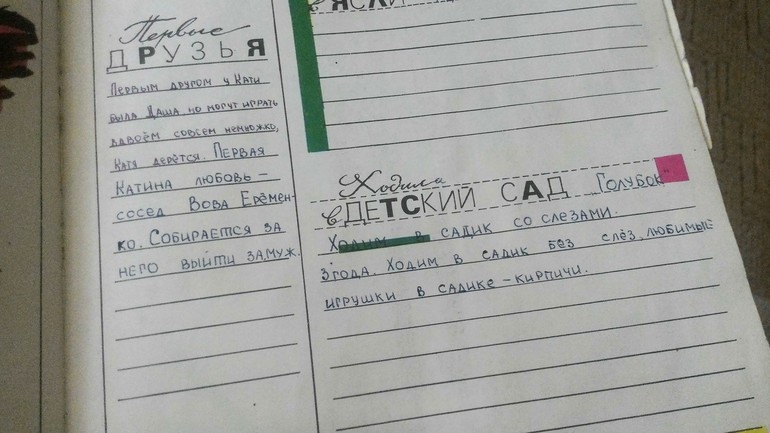 Первые
ДРУЗЬЯ
Первым другом у Кати
была Даша, но могут играть
вдвоём совсем немножко,
Катя дерётся. Первая
Катина любовь –
сосед Вова Ерёмен-
ко. Собирается за
него выйти замуж.
Ходила
в ДЕТСКИЙ САД Голубок
Ходим в садик со слезами.
3 года. Ходим в садик без слёз, любимые
игрушки в садике – кирпичи.